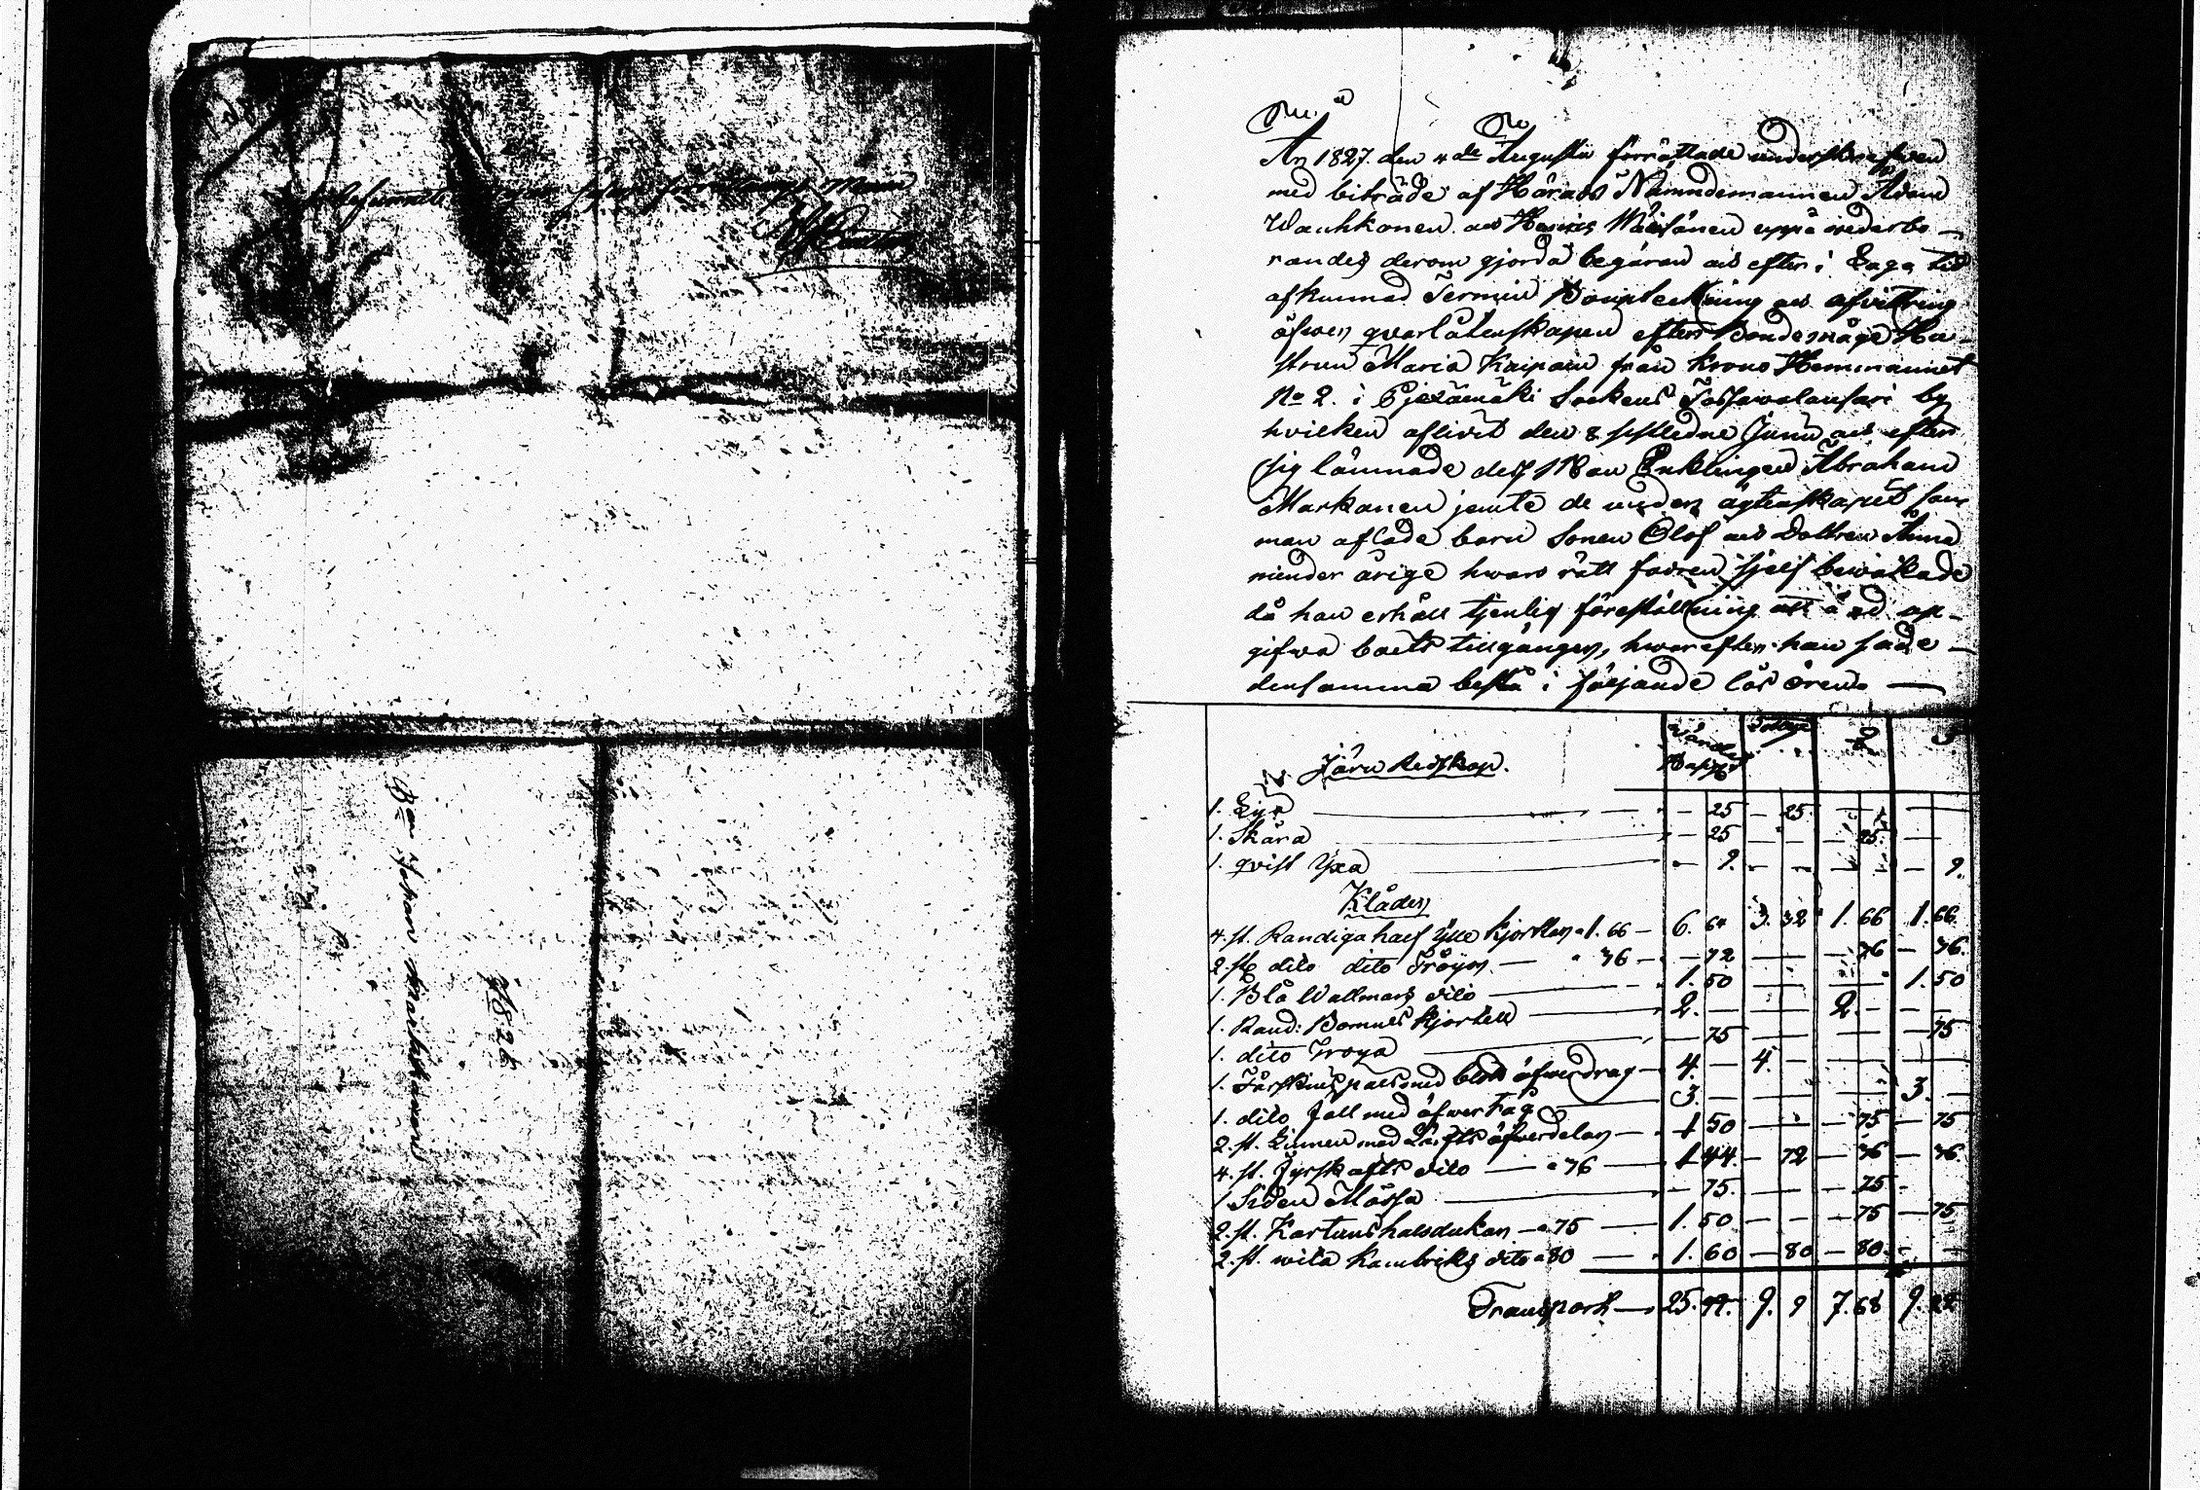 Bo Johan Markkanen
1826
År 1827. den 4de Augusti förrättade underskrefwen
med biträde af Härads Nämndemannen Adam
Wauhkonen och Henric Wäisänen uppå wederbö-
randes derom gjorda begäran och efter i Laga tid
afkunnad Termin Boupteckning och afvittring
öfwer qvarlåtenskapen efter Bondemåge Hu-
strun Maria Kaipain från Krono Hemmannet
No 2. i Pjexämäki Sockens Tossawalansari by
hvilken aflidit den 8 sistledne Junii och efter
sig lämnade dess Man Enklingen Abraham
Markanen jemte de under ägtenskapet sam-
man aflade barn Sonen Olof och Dottren Anna
minder årige hwars rätt fadren sjelf bewakade
då han erhöll tjenlig föreställning att à ed up-
gifwa boets tillgångar, hwarefter han sade
densamma bestå i följande lös ören
Järn Redskap.
1. Lya — 25 — 25
1. Skära — 25 — 25
1. qvist Yxa — 9. — 9.
Kläder
4. st. Randiga half Ylle Kjortlar a 1.66 — 6. 64 3. 32 1. 66 1. 66
2. st. dito dito Tröjor — 36 — 72 — 36 — 36.
1. Blå Wallmars dito — 1. 50 — 1. 50
1. Rand: Bomuls Kjortell — 2. — 2. —
1. dito Troya — 75 — 75
1. Fårskins päls med blått öfwerdrag — 4. — 4. —
1. dito fäll med öfwertag — 3. — 3. —
2. st. Linnen med Lärfts öfwerdelar — 1 50 — 75 — 75
4. st. fyrskafts dito — a 36 — 1 44 — 72 — 36 — 36.
1 Siden Mössa — 75. — 75 —
2. st. Kartuns halsdukar — a 75 — 1. 50 — 75 — 75
2. st. wita Kambriks dito a 80 — 1. 60 — 80 — 80 —
Transport — 25. 99. 9. 9 7. 68 9. 22